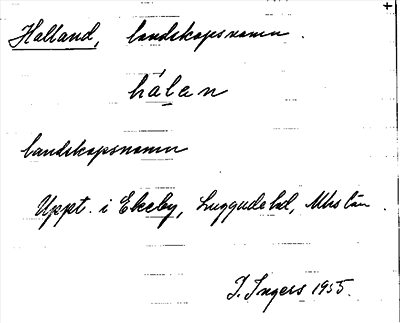 Halland, landskapsnamn.
hálan
landskapsnamn
Uppt. i Ekeby, Luggude hd, Mhs län.
I. Ingers 1955.